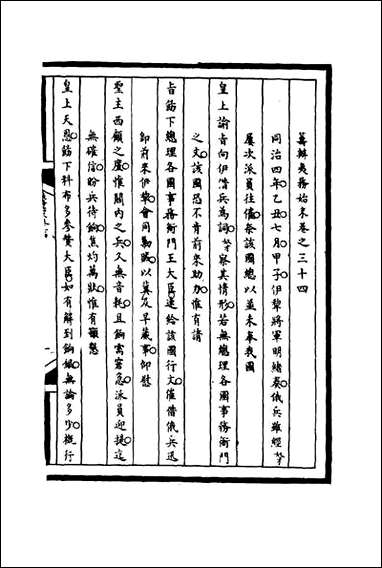 籌辦夷務始末卷之三十四
同治四年乙丑七月甲子伊犂將軍明緒奏俄兵雖經奴才
屢次派員往催祭該國總以並未奉我國
皇上諭旨向伊借兵爲詞奴才察其情形若無總理各國事務衙門
之文該國恐不肯前來助力惟有請
旨飭下總理各國事務衙門王大臣速給該國行文催借俄兵迅
卽前來伊犂會同勦賊以冀及早蕆事仰慰
聖主西顧之廑惟關內之兵久無音耗且餉需窘急派員迎提迄
無確信盼兵待餉焦灼萬狀惟有籲懇
皇上天恩飭下科布多參贊大臣如有解到餉銀無論多少挺行